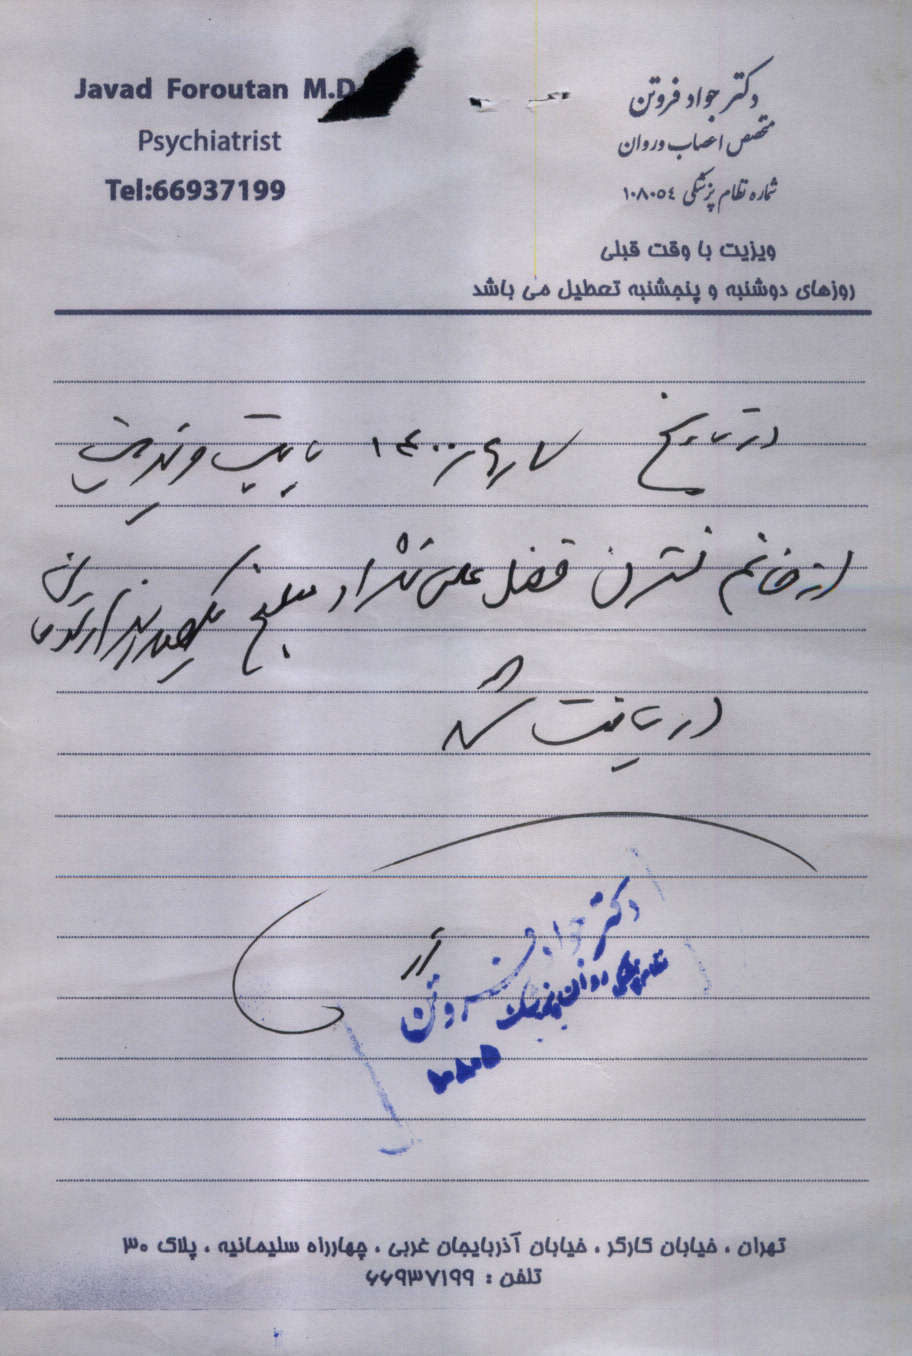 Javad Foroutan M.D
Psychiatrist
Tel:66937199
دکتر جواد فروتن
متخصص اعصاب و روان
شماره نظام پزشکی ۱۰۸۰۵۴
ویزیت با وقت قبلی
روزهای دوشنبه و پنجشنبه تعطیل می باشد
در تاریخ ۱۴۰۰ بابت ویزیت
از خانم نسترن فضل علی نژاد مبلغ یکصد هزار تومان
دریافت شد
دکتر جواد فروتن
روان پزشک
نظام پزشکی
تهران ، خیابان کارگر ، خیابان آذربایجان غربی ، چهارراه سلیمانیه ، پلاک ۳۰
تلفن : ۶۶۹۳۷۱۹۹